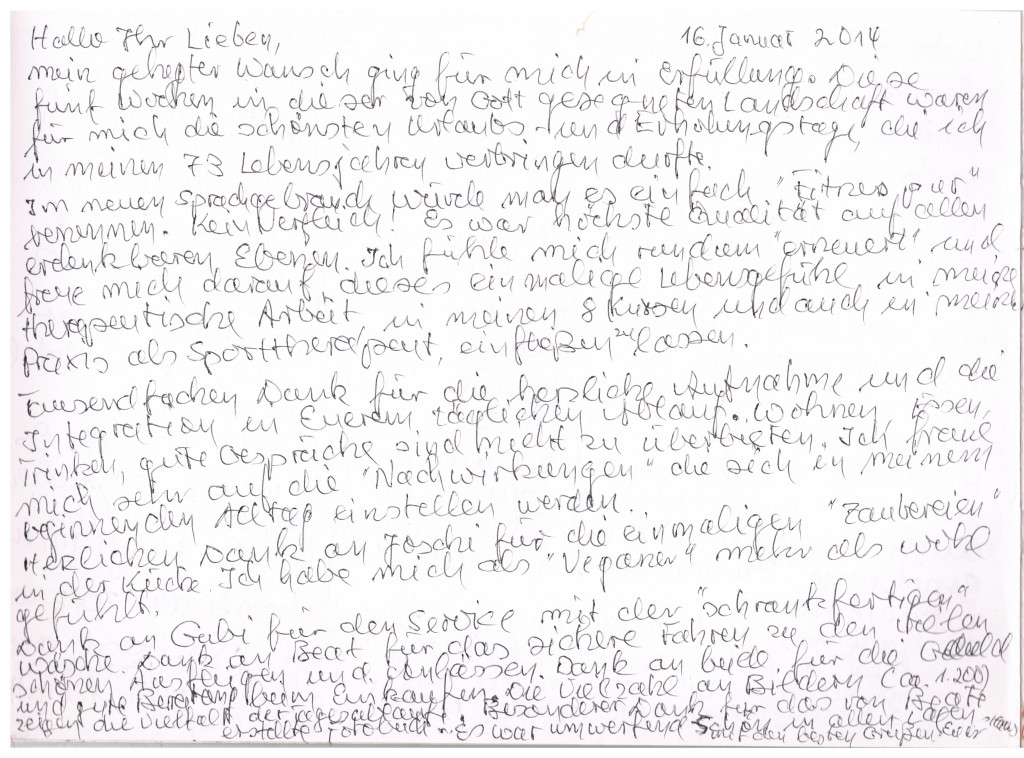 Hallo Ihr Lieben, 16. Januar 2014
mein gehegter Wunsch ging für mich in Erfüllung. Diese
fünf Wochen in dieser von Gott gesegneten Landschaft waren
für mich die schönsten Urlaubs- und Erholungstage, die ich
in meinen 73 Lebensjahren verbringen durfte.
Im neuen Sprachgebrauch würde man es einfach "Fitness pur"
benennen. Kein Vergleich! Es war höchste Qualität auf allen
erdenkbaren Ebenen. Ich fühle mich rundum "erneuert" und
freue mich darauf, dieses einmalige Lebensgefühl in meine
therapeutische Arbeit in meinen 8 Kursen und auch in meine
Praxis als Sporttherapeut, einfließen zu lassen.
Tausendfachen Dank für die herzliche Aufnahme und die
Integration in Euerm täglichen Ablauf. Wohnen, Essen,
Trinken, gute Gespräche sind nicht zu überbieten. Ich freue
mich sehr auf die "Nachwirkungen" die sich in meinem
beginnenden Alltag einstellen werden.
Herzlichen Dank an Joschi für die einmaligen "Zaubereien"
in der Küche. Ich habe mich als "Veganer" mehr als wohl
gefühlt.
Dank an Gabi für den Service mit der "schrankfertigen"
Wäsche. Dank an Beat für das sichere Fahren zu den vielen
schönen Ausflügen und Anlässen. Dank an beide für die Geduld
und gute Beratung beim Einkaufen. Die Vielzahl an Bildern (ca. 1.200)
zeigen die Vielfalt der Besonderer Dank für das von Beat
erstellte Fotobuch. Es war umwerfend schön in allen Lagen
mit den besten Grüßen Euer